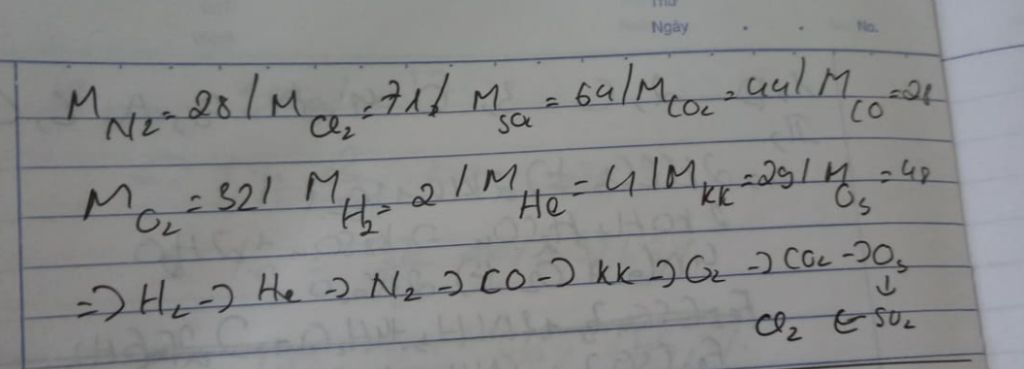 Thứ
Ngày . . No.
M N2 = 28 / M Cl2 = 71 / M SO2 = 64 / M CO2 = 44 / M CO = 28
M O2 = 32 / M H2 = 2 / M He = 4 / M KK = 29 / M O3 = 48
=> H2 -> He -> N2 -> CO -> KK -> O2 -> CO2 -> O3
↓
Cl2 ← SO2